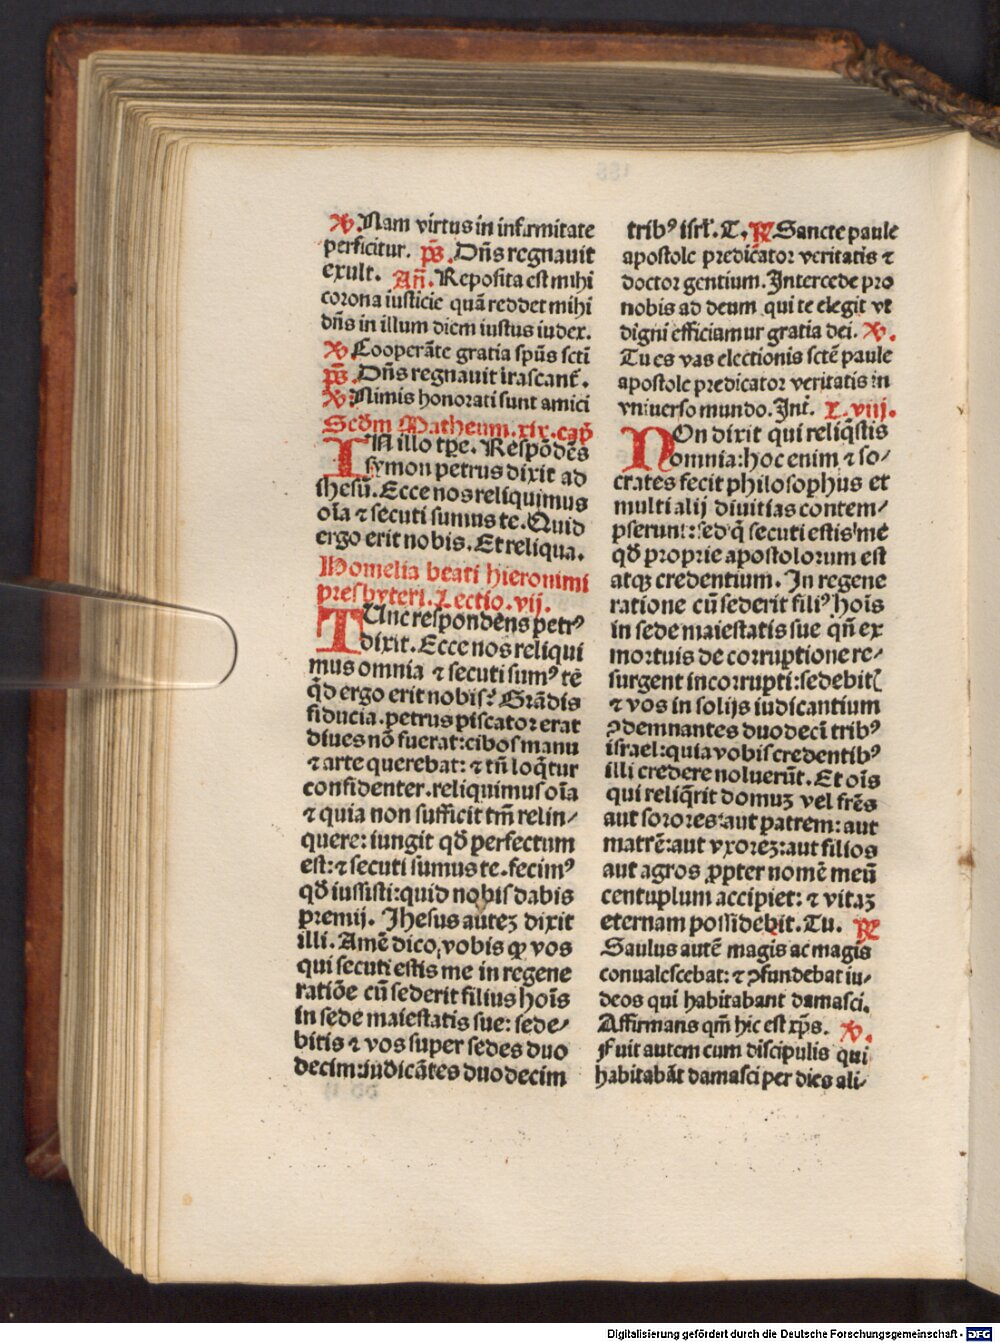 ℣. Nam virtus in infirmitate
perficitur. p̄s. Dn̄s regnauit
exult. An̄. Reposita est mihi
corona iusticie quā reddet mihi
dn̄s in illum diem iustus iudex.
℣. Cooperāte gratia spūs sctī
p̄s. Dn̄s regnauit irascant̄.
℣. Nimis honorati sunt amici
Scd̄m Matheum. xix. cap̄
IN illo tp̄e. Respōdēs
symon petrus dixit ad
ihesū. Ecce nos reliquimus
oīa ⁊ secuti sumus te. Quid
ergo erit nobis. Et reliqua.
Homelia beati hieronimi
presbyteri. Lectio. vij.
TUnc respondēns petrꝰ
dixit. Ecce nos reliqui
mus omnia ⁊ secuti sumꝰ tē
q̄d ergo erit nobis? Grādis
fiducia. petrus piscator erat
diues nō fuerat: cibos manu
⁊ arte querebat: ⁊ tn̄ loq̄tur
confidenter. reliquimus oīa
⁊ quia non sufficit tm̄ relin⸗
quere: iungit qd̄ perfectum
est: ⁊ secuti sumus te. fecimꝰ
qd̄ iussisti: quid nobis dabis
premij. Ihesus auteꝫ dixit
illi. Amē dico vobis ꝙ vos
qui secuti estis me in regene
ratiōe cū sederit filius hoīs
in sede maiestatis sue: sede⸗
bitis ⁊ vos super sedes duo
decim: iudicātes duodecim
tribꝰ isrl̄. T. ℟ Sancte paule
apostole predicator veritatis ⁊
doctor gentium. Intercede pro
nobis ad deum qui te elegit vt
digni efficiamur gratia dei. ℣.
Tu es vas electionis sctē paule
apostole predicator veritatis in
vniuerso mundo. Int̄. L. viij.
NOn dixit qui reliq̄stis
omnia: hoc enim ⁊ so⸗
crates fecit philosophus et
multi alij diuitias contem⸗
pserunt: sed q̄ secuti estis me
qd̄ proprie apostolorum est
atqꝫ credentium. In regene
ratione cū sederit filiꝰ hoīs
in sede maiestatis sue qn̄ ex
mortuis de corruptione re⸗
surgent incorrupti: sedebit̄
⁊ vos in solijs iudicantium
ꝯdemnantes duodecī tribꝰ
israel: quia vobis credentibꝰ
illi credere noluerūt. Et oīs
qui reliq̄rit domuꝫ vel frēs
aut sorores: aut patrem: aut
matrē: aut vxoreꝫ: aut filios
aut agros ꝓpter nomē meū
centuplum accipiet: ⁊ vitaꝫ
eternam possidebit. Tu. ℟
Saulus autē magis ac magis
conualescebat: ⁊ ꝯfundebat iu⸗
deos qui habitabant damasci.
Affirmans qm̄ hic est xp̄s. ℣.
Fuit autem cum discipulis qui
habitabāt damasci per dies ali⸗
Digitalisierung gefördert durch die Deutsche Forschungsgemeinschaft - DFG